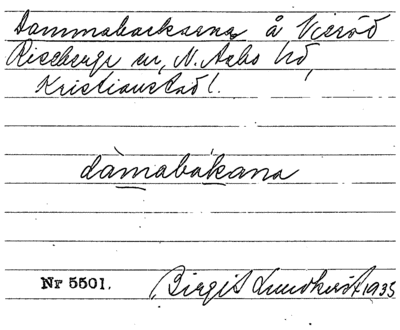 Dammabackarna å Viaröd
Riseberga sn, N. Åsbo hd,
Kristianstad l.
dàmabákana
Nr 5501. Birgit Lundkvist 1935